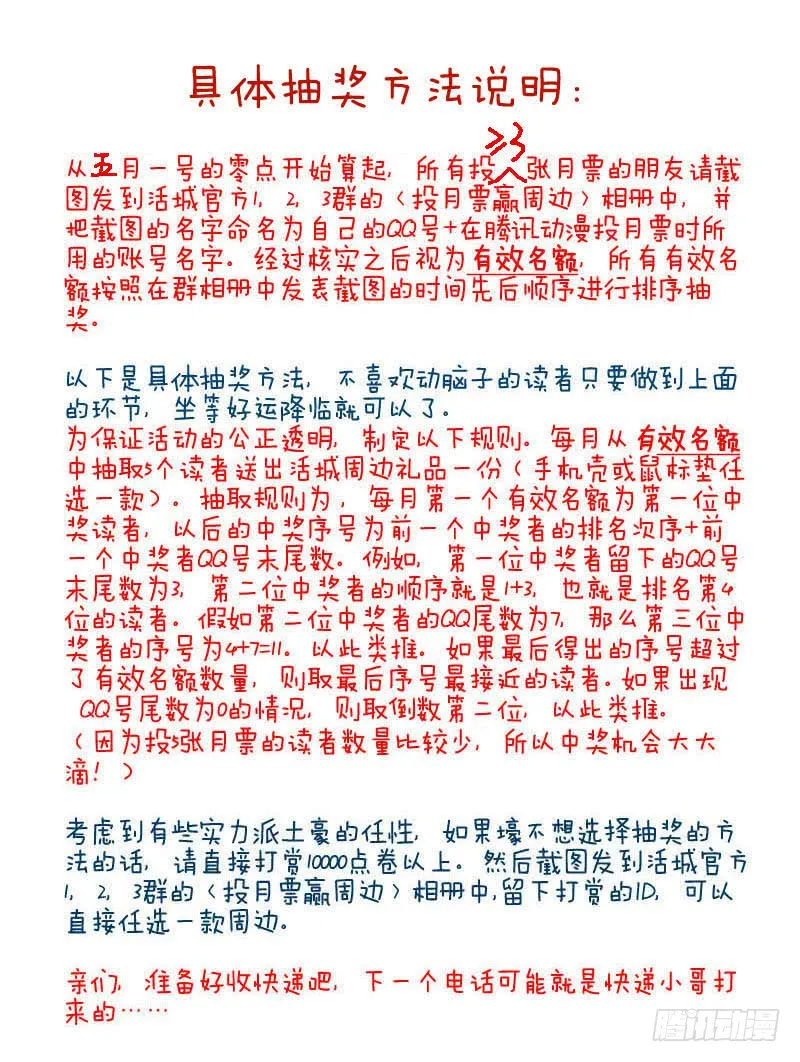 具体抽奖方法说明：
≥3
从五月一号的零点开始算起，所有投 张月票的朋友请截
图发到活城官方1，2，3群的〈投月票赢周边〉相册中，并
把截图的名字命名为自己的QQ号+在腾讯动漫投月票时所
用的账号名字。经过核实之后视为有效名额，所有有效名
额按照在群相册中发表截图的时间先后顺序进行排序抽
奖。
以下是具体抽奖方法，不喜欢动脑子的读者只要做到上面
的环节，坐等好运降临就可以了。
为保证活动的公正透明，制定以下规则。每月从有效名额
中抽取5个读者送出活城周边礼品一份（手机壳或鼠标垫任
选一款）。抽取规则为，每月第一个有效名额为第一位中
奖读者，以后的中奖序号为前一个中奖者的排名次序+前
一个中奖者QQ号末尾数。例如，第一位中奖者留下的QQ号
末尾数为3，第二位中奖者的顺序就是1+3，也就是排名第4
位的读者。假如第二位中奖者的QQ尾数为7，那么第三位中
奖者的序号为4+7=11。以此类推。如果最后得出的序号超过
了有效名额数量，则取最后序号最接近的读者。如果出现
QQ号尾数为0的情况，则取倒数第二位，以此类推。
（因为投5张月票的读者数量比较少，所以中奖机会大大
滴！）
考虑到有些实力派土豪的任性，如果壕不想选择抽奖的方
法的话，请直接打赏10000点卷以上。然后截图发到活城官方
1，2，3群的〈投月票赢周边〉相册中，留下打赏的ID，可以
直接任选一款周边。
亲们，准备好收快递吧，下一个电话可能就是快递小哥打
来的……
腾讯动漫